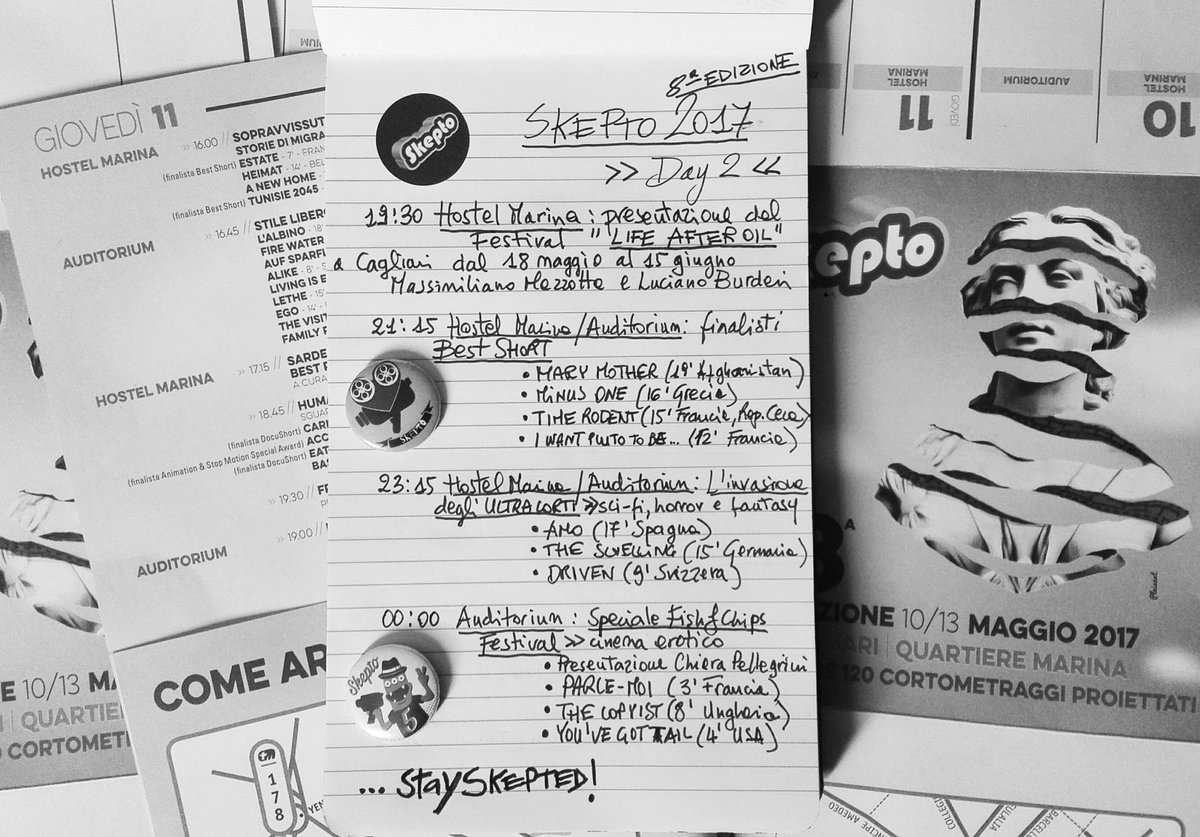 8ª EDIZIONE
Skepto
SKEPTO 2017
>> Day 2 <<
19:30 Hostel Marina : presentazione del
Festival "LIFE AFTER OIL"
a Cagliari dal 18 maggio al 15 giugno
Massimiliano Mazzotta e Luciano Burderi
21:15 Hostel Marina/Auditorium: finalisti
Best SHORT
• MARY MOTHER (19' Afghanistan)
• MINUS ONE (16' Grecia)
• TIME RODENT (15' Francia, Rep. Ceca)
• I WANT PLUTO TO BE... (12' Francia)
SKEPTO
23:15 Hostel Marina/Auditorium: L'invasione
degli ULTRACORTI >> sci-fi, horror e fantasy
• AMO (17' Spagna)
• THE SWELLING (15' Germania)
• DRIVEN (9' Svizzera)
00:00 Auditorium : Speciale Fish&Chips
Festival >> cinema erotico
• Presentazione Chiara Pellegrini
• PARLE-MOI (3' Francia)
• THE COPYIST (8' Ungheria)
• YOU'VE GOT TAIL (4' USA)
Skepto
... Stay SKEPTED!
GIOVEDÌ 11
HOSTEL MARINA
>> 16.00 // SOPRAVVISSUT
STORIE DI MIGRA
(finalista Best Short) ESTATE - 7' - FRAN
HEIMAT - 14' - BEL
A NEW HOME -
(finalista Best Short) TUNISIE 2045 -
AUDITORIUM
>> 16.45 // STILE LIBER
L'ALBINO - 18'
FIRE WATER
AUF SPARFL
ALIKE - 8' - S
LIVING IS E
LETHE - 15'
EGO - 14'
THE VISIT
FAMILY F
HOSTEL MARINA
>> 17.15 // SARDE
BEST F
A CURA
>> 18.45 // HUMA
SGUAR
(finalista DocuShort) CARI
(finalista Animation & Stop Motion Special Award) ACC
(finalista DocuShort) EAT
BAS
>> 19.30 // FR
AUDITORIUM
>> 19.00 //
COME AR
178
E 10/13 MA
QUARTIERE
CORTOMETRA
HOSTEL MARINA
11
GIOVEDÌ
AUDITORIUM
HOSTEL MARINA
10
epto
8ª
ZIONE 10/13 MAGGIO 2017
ARI | QUARTIERE MARINA
E 120 CORTOMETRAGGI PROIETTATI